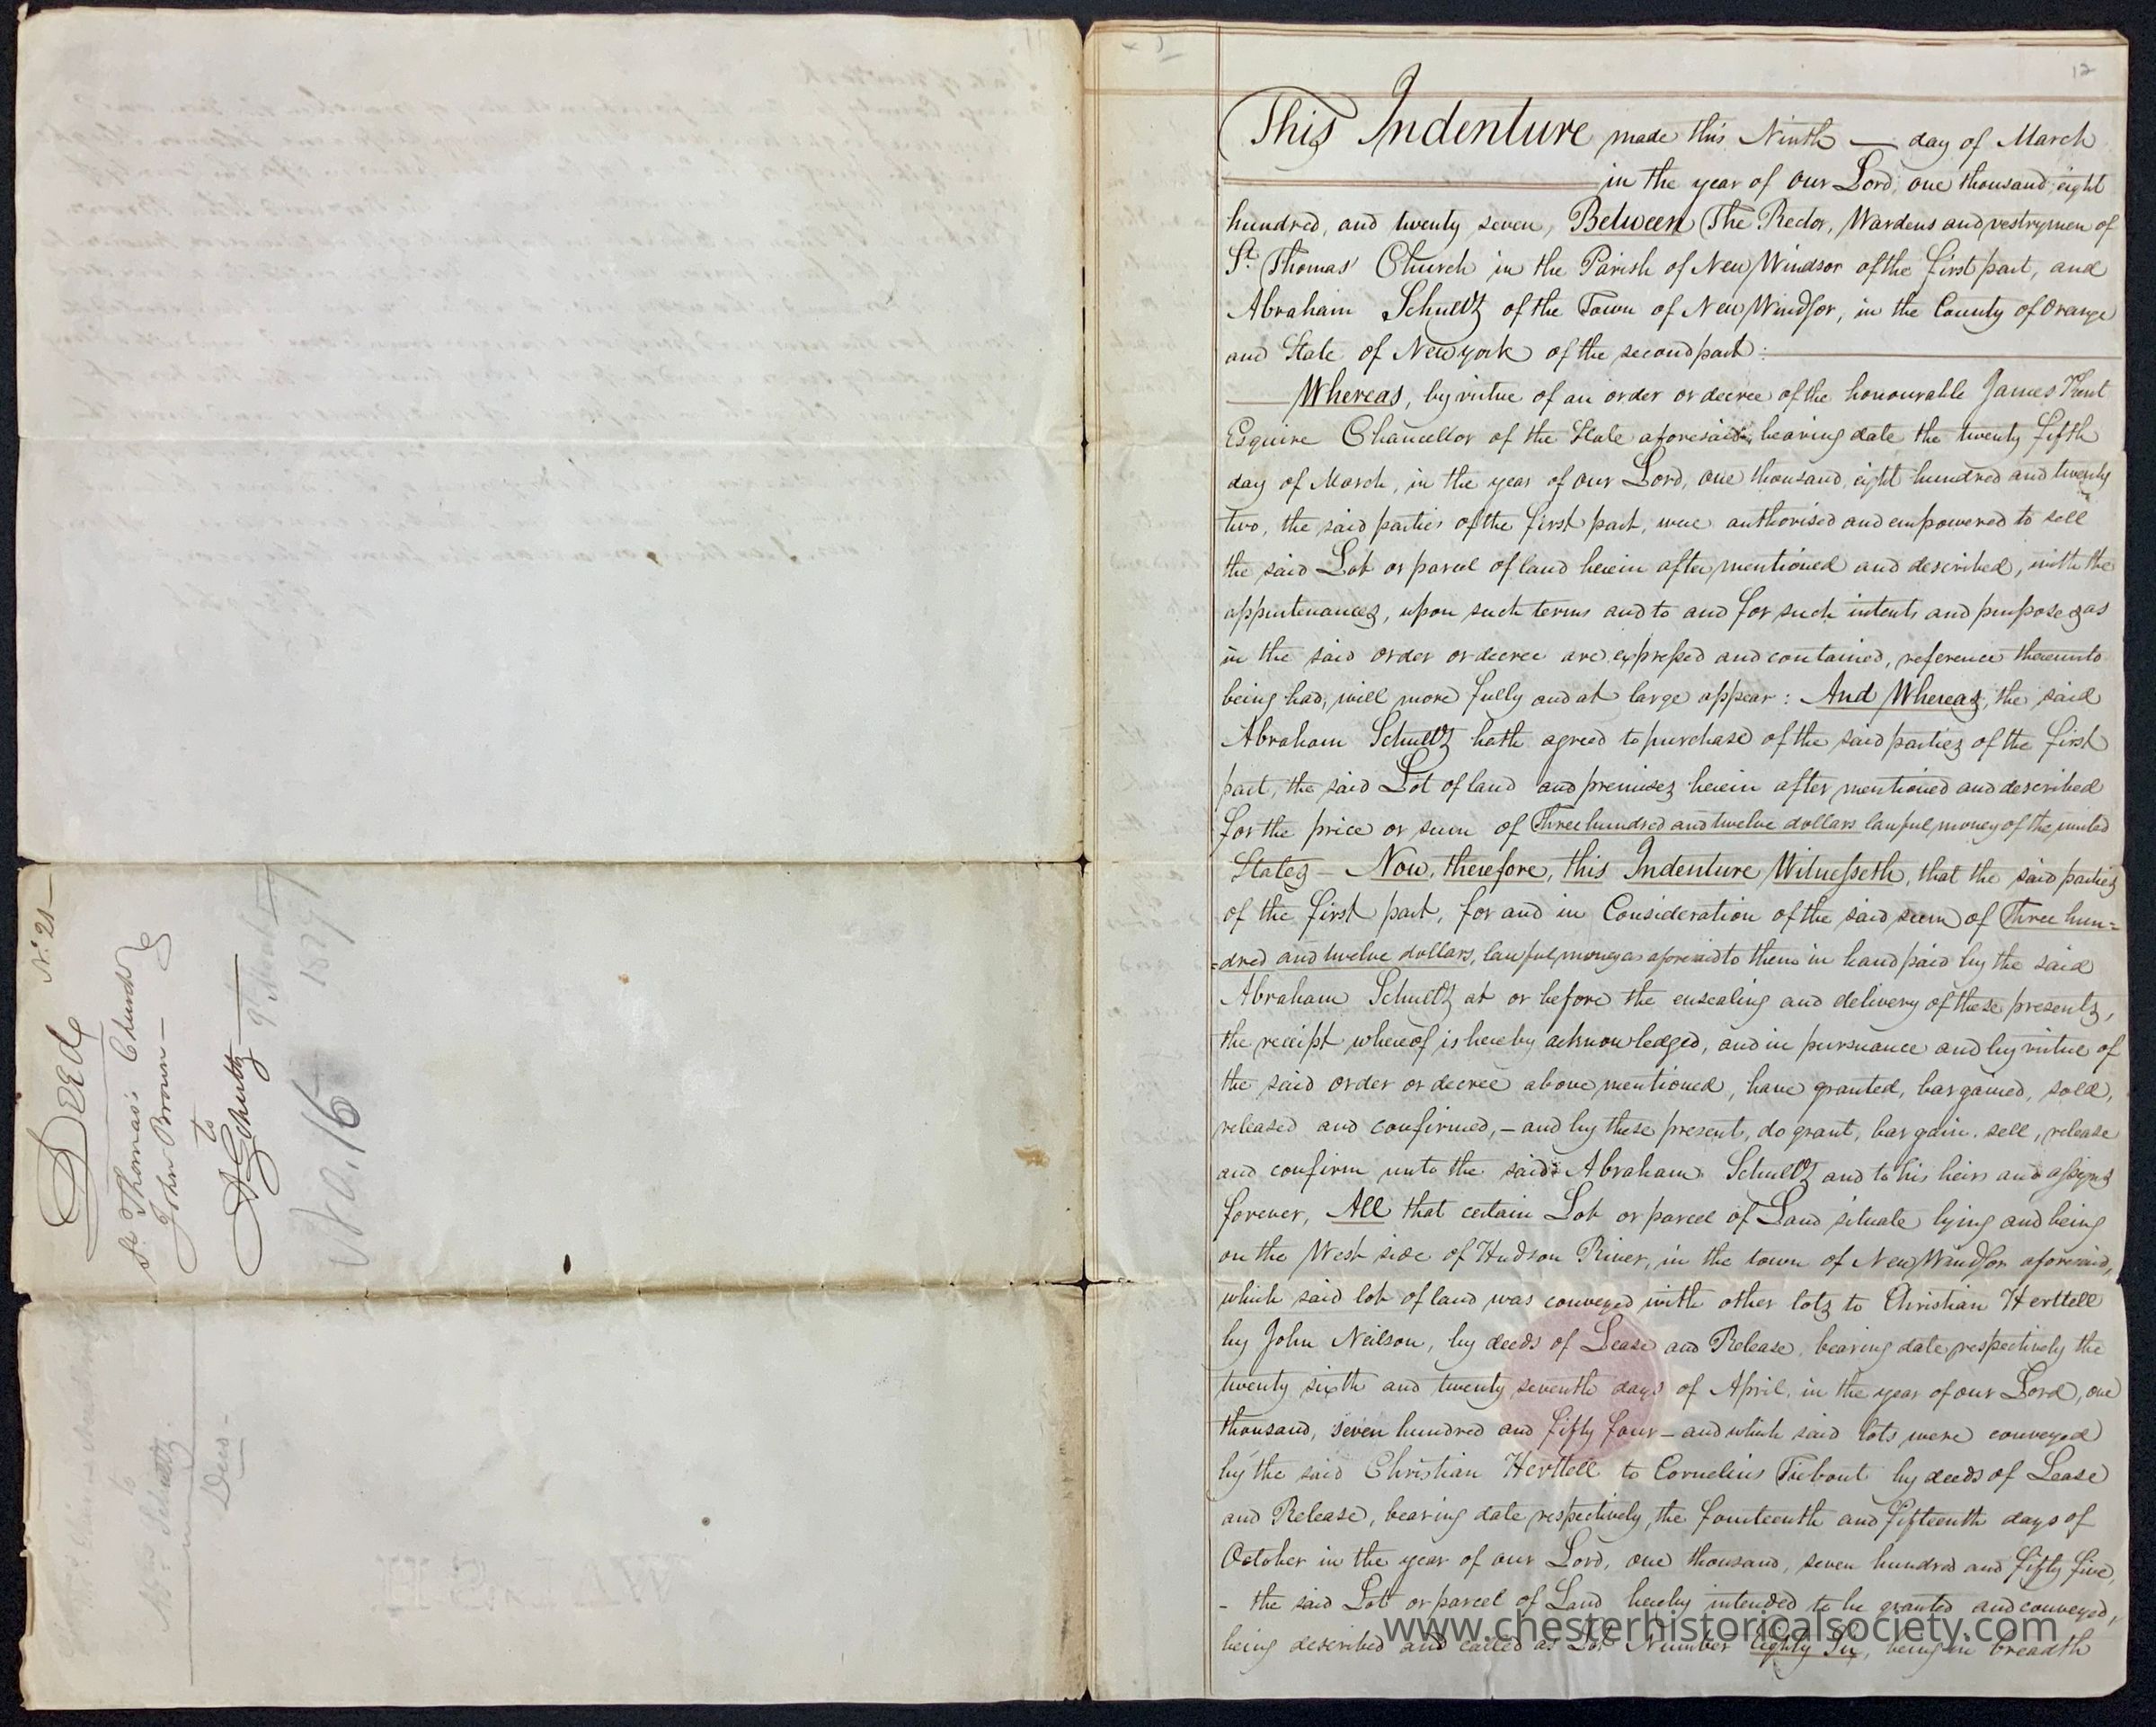 Deed
No. 21 —
St. Thomas's Church &
John Brown —
to
A Schultz —
9th March
1827
No. 16
to
Schultz
Deed -
12
This Indenture made this Ninth — day of March
in the year of our Lord, one thousand, eight
hundred, and twenty seven, Between The Rector, Wardens and vestrymen of
St. Thomas' Church in the Parish of New Windsor of the first part, and
Abraham Schultz of the Town of New Windsor, in the County of Orange
and State of Newyork of the second part :
Whereas, by virtue of an order or decree of the honourable James Kent
Esquire Chancellor of the State aforesaid, bearing date the twenty fifth
day of March, in the year of our Lord, one thousand, eight hundred and twenty
two, the said parties of the first part, were authorised and empowered to sell
the said Lot or parcel of land herein after mentioned and described, with the
appurtenances, upon such terms and to and for such intents and purposes as
in the said order or decree are expressed and contained, reference thereunto
being had, will more fully and at large appear : And Whereas, the said
Abraham Schultz hath agreed to purchase of the said parties of the first
part, the said Lot of land and premises herein after mentioned and described
for the price or sum of Three hundred and twelve dollars lawful money of the united
States — Now, therefore, this Indenture Witnesseth, that the said parties
of the first part, for and in Consideration of the said sum of Three hun=
=dred and twelve dollars, lawful money as aforesaid to them in hand paid by the said
Abraham Schultz at or before the ensealing and delivery of these presents,
the receipt whereof is hereby acknowledged, and in pursuance and by virtue of
the said order or decree above mentioned, have granted, bargained, sold,
released and confirmed, — and by these present, do grant, bargain. sell, release
and confirm unto the said Abraham Schultz and to his heirs and assigns
forever, All that certain Lot or parcel of Land situate lying and being
on the West side of Hudson River, in the town of New Windsor aforesaid,
which said lot of land was conveyed with other lots to Christian Herttell
by John Neilson, by deeds of Lease and Release, bearing date respectively the
twenty sixth and twenty seventh days of April, in the year of our Lord, one
thousand, seven hundred and fifty four — and which said lots were conveyed
by the said Christian Herttell to Cornelius Tiebout by deeds of Lease
and Release, bearing date respectively, the fourteenth and fifteenth days of
October in the year of our Lord, one thousand, seven hundred and fifty five,
- the said Lot or parcel of Land hereby intended to be granted and conveyed,
being described and called as Lot Number Eighty Six, being in breadth
www.chesterhistoricalsociety.com